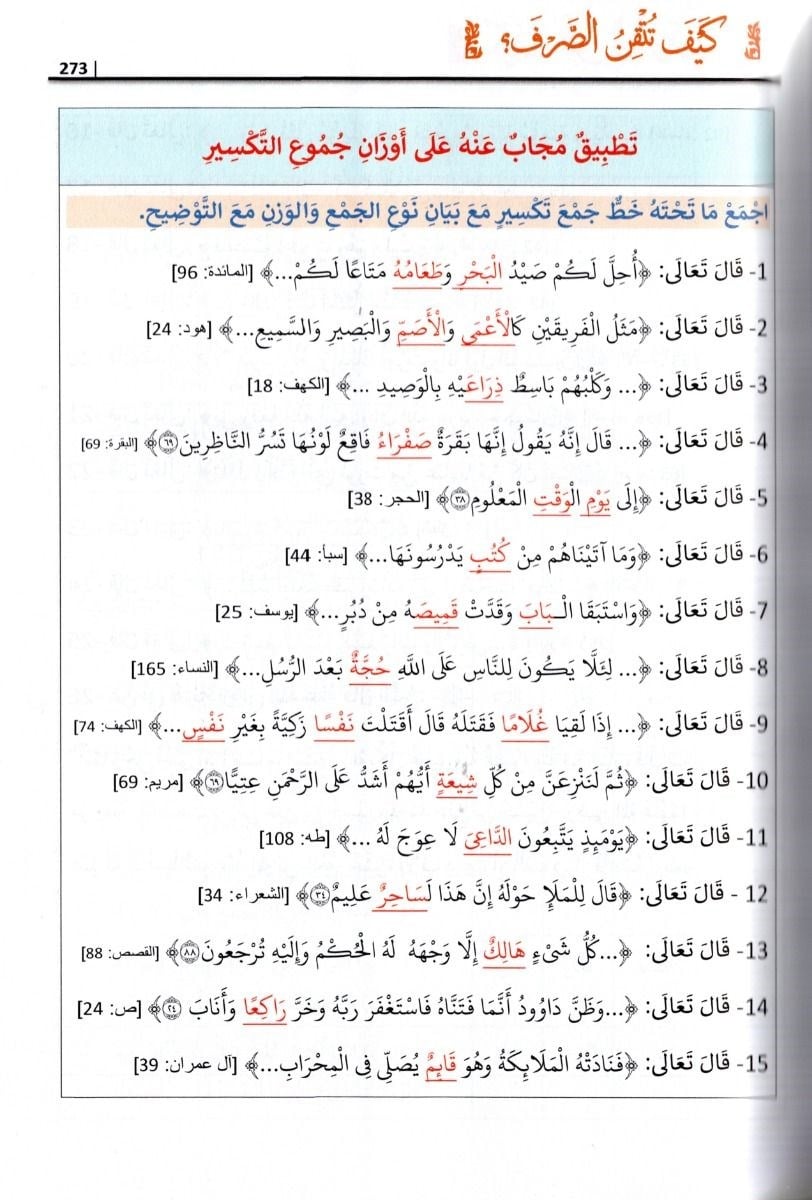 كَيْفَ تُتْقِنُ الصَّرْفَ؟
273
تَطْبِيقٌ مُجَابٌ عَنْهُ عَلَى أَوْزَانِ جُمُوعِ التَّكْسِيرِ
اجْمَعْ مَا تَحْتَهُ خَطٌّ جَمْعَ تَكْسِيرٍ مَعَ بَيَانِ نَوْعِ الجَمْعِ وَالوَزنِ مَعَ التَّوْضِيحِ.
1- قَالَ تَعَالَى: ﴿أُحِلَّ لَكُمْ صَيْدُ الْبَحْرِ وَطَعَامُهُ مَتَاعًا لَكُمْ...﴾ [المائدة: 96]
2- قَالَ تَعَالَى: ﴿مَثَلُ الْفَرِيقَيْنِ كَالْأَعْمَى وَالْأَصَمِّ وَالْبَصِيرِ وَالسَّمِيعِ...﴾ [هود: 24]
3- قَالَ تَعَالَى: ﴿... وَكَلْبُهُمْ بَاسِطٌ ذِرَاعَيْهِ بِالْوَصِيدِ ...﴾ [الكهف: 18]
4- قَالَ تَعَالَى: ﴿... قَالَ إِنَّهُ يَقُولُ إِنَّهَا بَقَرَةٌ صَفْرَاءُ فَاقِعٌ لَوْنُهَا تَسُرُّ النَّاظِرِينَ ٦٩﴾ [البقرة: 69]
5- قَالَ تَعَالَى: ﴿إِلَى يَوْمِ الْوَقْتِ الْمَعْلُومِ ٣٨﴾ [الحجر: 38]
6- قَالَ تَعَالَى: ﴿وَمَا آتَيْنَاهُمْ مِنْ كُتُبٍ يَدْرُسُونَهَا...﴾ [سبأ: 44]
7- قَالَ تَعَالَى: ﴿وَاسْتَبَقَا الْبَابَ وَقَدَّتْ قَمِيصَهُ مِنْ دُبُرٍ...﴾ [يوسف: 25]
8- قَالَ تَعَالَى: ﴿... لِئَلَّا يَكُونَ لِلنَّاسِ عَلَى اللَّهِ حُجَّةٌ بَعْدَ الرُّسُلِ...﴾ [النساء: 165]
9- قَالَ تَعَالَى: ﴿... إِذَا لَقِيَا غُلَامًا فَقَتَلَهُ قَالَ أَقَتَلْتَ نَفْسًا زَكِيَّةً بِغَيْرِ نَفْسٍ...﴾ [الكهف: 74]
10- قَالَ تَعَالَى: ﴿ثُمَّ لَنَنْزِعَنَّ مِنْ كُلِّ شِيعَةٍ أَيُّهُمْ أَشَدُّ عَلَى الرَّحْمَنِ عِتِيًّا ٦٩﴾ [مريم: 69]
11- قَالَ تَعَالَى: ﴿يَوْمَئِذٍ يَتَّبِعُونَ الدَّاعِيَ لَا عِوَجَ لَهُ ...﴾ [طه: 108]
12 - قَالَ تَعَالَى: ﴿قَالَ لِلْمَلَإِ حَوْلَهُ إِنَّ هَذَا لَسَاحِرٌ عَلِيمٌ ٣٤﴾ [الشعراء: 34]
13- قَالَ تَعَالَى: ﴿...كُلُّ شَيْءٍ هَالِكٌ إِلَّا وَجْهَهُ لَهُ الْحُكْمُ وَإِلَيْهِ تُرْجَعُونَ ٨٨﴾ [القصص: 88]
14- قَالَ تَعَالَى: ﴿...وَظَنَّ دَاوُودُ أَنَّمَا فَتَنَّاهُ فَاسْتَغْفَرَ رَبَّهُ وَخَرَّ رَاكِعًا وَأَنَابَ ٢٤﴾ [ص: 24]
15- قَالَ تَعَالَى: ﴿فَنَادَتْهُ الْمَلَائِكَةُ وَهُوَ قَائِمٌ يُصَلِّي فِي الْمِحْرَابِ...﴾ [آل عمران: 39]